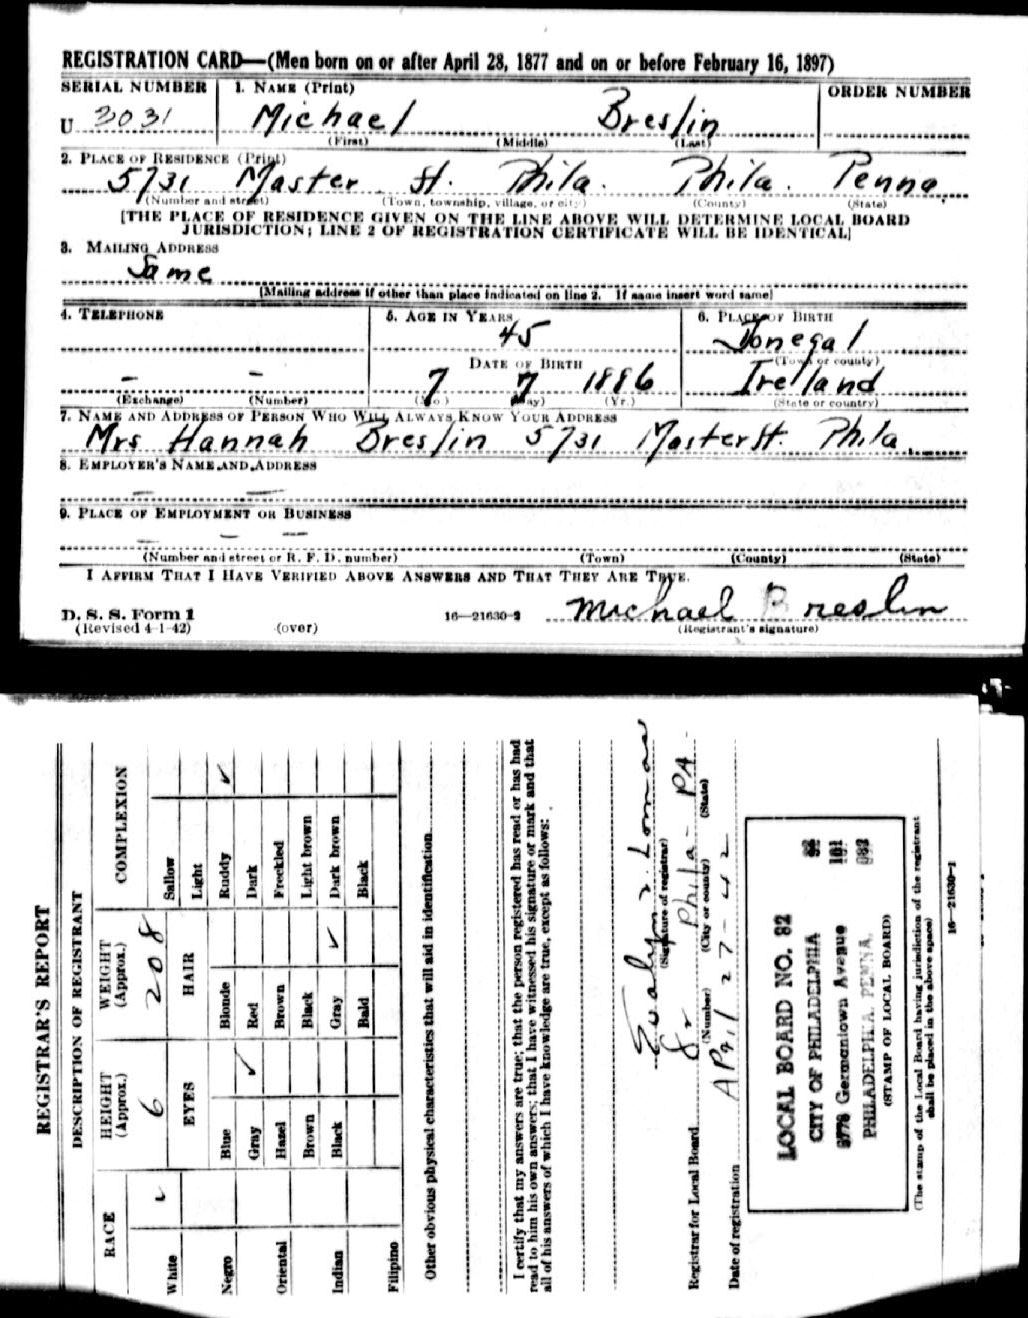 REGISTRATION CARD—(Men born on or after April 28, 1877 and on or before February 16, 1897)
SERIAL NUMBER 1. NAME (Print) ORDER NUMBER
U 3031 Michael Breslin
(First) (Middle) (Last)
2. PLACE OF RESIDENCE (Print)
5731 Master St. Phila. Phila. Penna.
(Number and street) (Town, township, village, or city) (County) (State)
[THE PLACE OF RESIDENCE GIVEN ON THE LINE ABOVE WILL DETERMINE LOCAL BOARD
JURISDICTION; LINE 2 OF REGISTRATION CERTIFICATE WILL BE IDENTICAL]
3. MAILING ADDRESS
Same
[Mailing address if other than place indicated on line 2. If same insert word same]
4. TELEPHONE 5. AGE IN YEARS 6. PLACE OF BIRTH
45 Donegal
DATE OF BIRTH (Town or county)
– – 7 7 1886 Ireland
(Exchange) (Number) (Mo.) (Day) (Yr.) (State or country)
7. NAME AND ADDRESS OF PERSON WHO WILL ALWAYS KNOW YOUR ADDRESS
Mrs Hannah Breslin 5731 Master St. Phila.
8. EMPLOYER'S NAME AND ADDRESS
— —
9. PLACE OF EMPLOYMENT OR BUSINESS
— — —
(Number and street or R. F. D. number) (Town) (County) (State)
I AFFIRM THAT I HAVE VERIFIED ABOVE ANSWERS AND THAT THEY ARE TRUE.
D. S. S. Form 1 16—21630-2 Michael Breslin
(Revised 4-1-42) (over) (Registrant's signature)
REGISTRAR'S REPORT
DESCRIPTION OF REGISTRANT
RACE HEIGHT (Approx.) WEIGHT (Approx.) COMPLEXION
White ✓ 6 208 Sallow
EYES HAIR Light
Negro Blue Blonde Ruddy ✓
Gray ✓ Red Dark
Oriental Hazel Brown Freckled
Brown Black Light brown
Indian Black Gray ✓ Dark brown
Bald Black
Filipino
Other obvious physical characteristics that will aid in identification
I certify that my answers are true; that the person registered has read or has had
read to him his own answers; that I have witnessed his signature or mark and that
all of his answers of which I have knowledge are true, except as follows:
(Signature of registrar)
Registrar for Local Board 82 Phila- PA
(Number) (City or county) (State)
Date of registration APril 27-42
LOCAL BOARD NO. 82 82
CITY OF PHILADELPHIA 101
Germantown Avenue
PHILADELPHIA, PENNA.
(STAMP OF LOCAL BOARD)
(The stamp of the Local Board having jurisdiction of the registrant
shall be placed in the above space)
16—21630-1